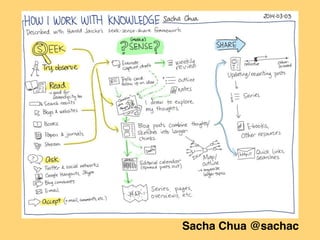 HOW I WORK WITH KNOWLEDGE
Sacha Chua
2014-03-03
Described with Harold Jarche's seek-sense-share framework
SEEK
Try, observe
Read
Search results
Blogs & websites
Books
Papers & journals
Stream
Ask
Twitter & social networks
Google Hangouts, Skype
Blog comments
E-mail
Accept (e-mail, comments, etc.)
SENSE
Evernote
capture draft
weekly
reviews
Index card
Outline
Notes
I draw to explore
my thoughts.
Blog posts combine thoughts/
sketches into larger
chunks.
Editorial calendar
(spread posts out)
Map/
Outline
to organize
larger topics
Series pages,
overviews, etc.
SHARE
Updating/rewriting posts
Series
E-books,
Other resources
Quick links,
searches
Sacha Chua @sachac